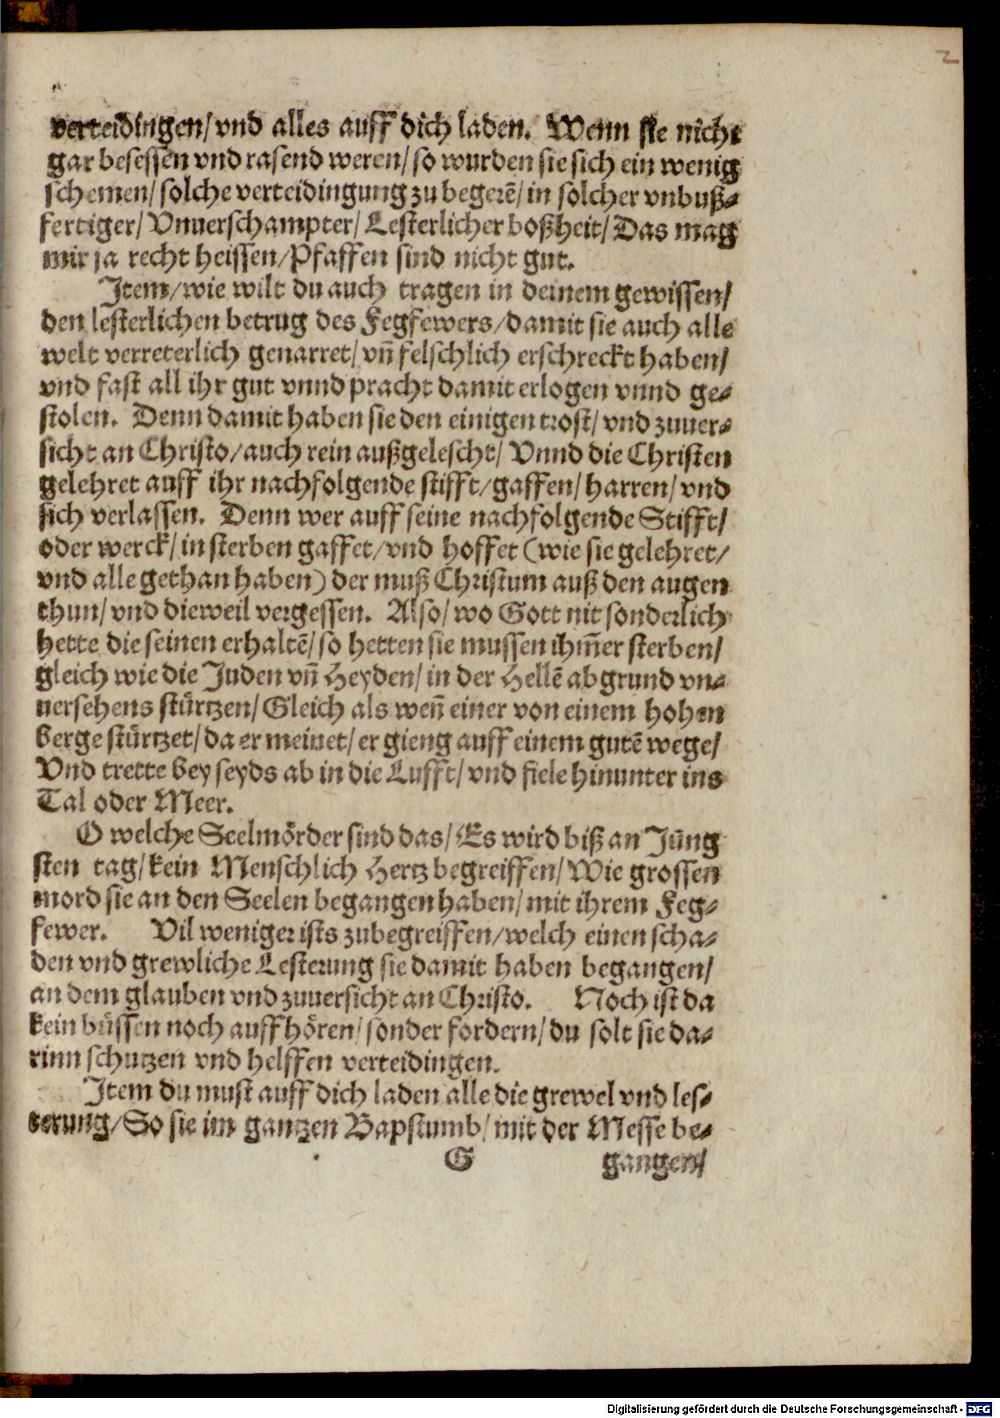 2
verteidingen/ vnd alles auff dich laden. Wenn sie nicht
gar besessen vnd rasend weren/ so wurden sie sich ein wenig
schemen/ solche verteidingung zu begerē/ in solcher vnbuß-
fertiger/ Vnuerschampter/ Lesterlicher boßheit/ Das mag
mir ja recht heissen/ Pfaffen sind nicht gut.
Item/ wie wilt du auch tragen in deinem gewissen/
den lesterlichen betrug des Fegfewers/ damit sie auch alle
welt verreterlich genarret/ vn̄ felschlich erschreckt haben/
vnd fast all ihr gut vnnd pracht damit erlogen vnnd ge-
stolen. Denn damit haben sie den einigen trost/ vnd zuuer-
sicht an Christo/ auch rein außgelescht/ Vnnd die Christen
gelehret auff ihr nachfolgende stifft/ gaffen/ harren/ vnd
sich verlassen. Denn wer auff seine nachfolgende Stifft/
oder werck/ in sterben gaffet/ vnd hoffet (wie sie gelehret/
vnd alle gethan haben) der muß Christum auß den augen
thun/ vnd dieweil vergessen. Also/ wo Gott nit sonderlich
hette die seinen erhaltē/ so hetten sie mussen ihm̄er sterben/
gleich wie die Juden vn̄ Heyden/ in der Hellē abgrund vn-
uersehens stürtzen/ Gleich als wen̄ einer von einem hohen
berge stürtzet/ da er meinet/ er gieng auff einem gutē wege/
Vnd trette bey seyds ab in die Lufft/ vnd fiele hinunter ins
Tal oder Meer.
O welche Seelmörder sind das/ Es wird biß an Jūng
sten tag/ kein Menschlich Hertz begreiffen/ Wie grossen
mord sie an den Seelen begangen haben/ mit ihrem Feg-
fewer. Vil weniger ists zubegreiffen/ welch einen scha-
den vnd grewliche Lesterung sie damit haben begangen/
an dem glauben vnd zuuersicht an Christo. Noch ist da
kein büssen noch auffhören/ sonder fordern/ du solt sie da-
rinn schutzen vnd helffen verteidingen.
Item du must auff dich laden alle die grewel vnd les-
terung/ So sie im gantzen Bapstumb/ mit der Messe be-
G gangen/
Digitalisierung gefördert durch die Deutsche Forschungsgemeinschaft - DFG